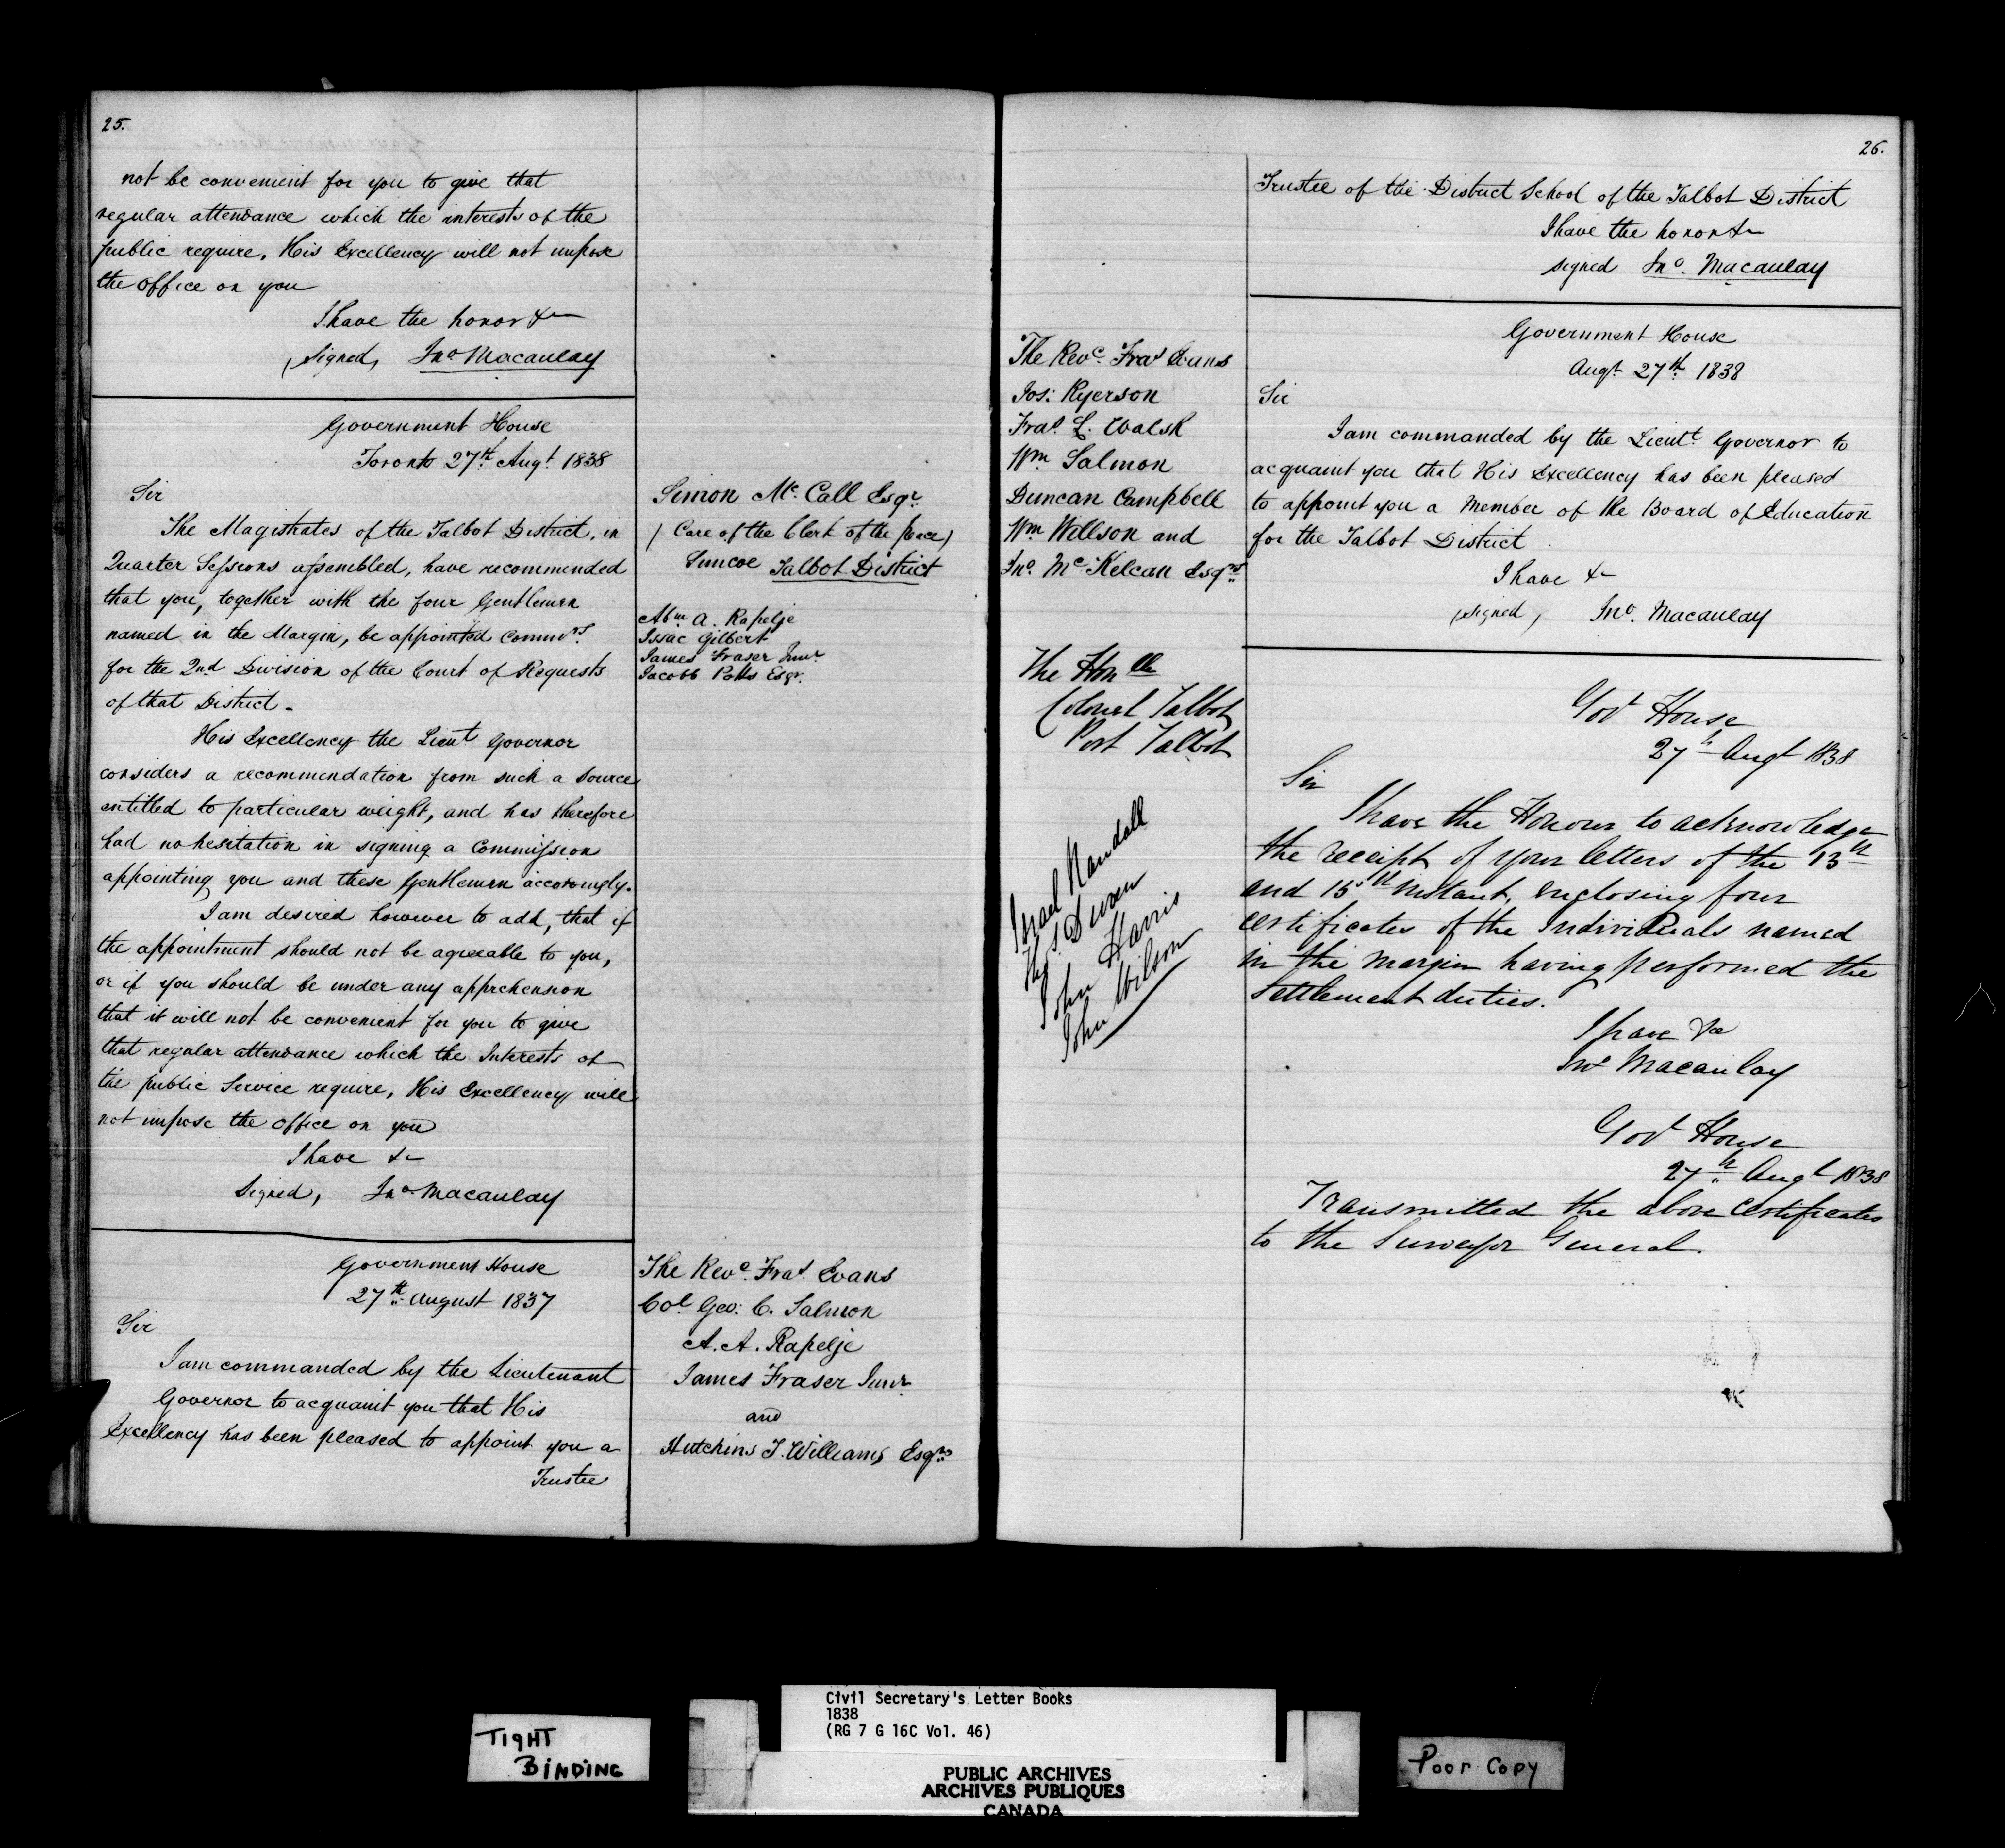 25.
not be convenient for you to give that
regular attendance which the interests of the
public require, His Excellency will not impose
the office on you
I have the honor &c
(signed, Jno Macaulay
Government House
Toronto 27th Augt 1838
Sir
The Magistrates of the Talbot District, in
Quarter Sessions assembled, have recommended
that you, together with the four Gentlemen
named in the Margin, be appointed Commrs
for the 2nd Division of the Court of Requests
of that District.
His Excellency the Lieut Governor
considers a recommendation from such a source
entitled to particular weight, and has therefore
had no hesitation in signing a Commission
appointing you and these Gentlemen accordingly.
I am desired however to add, that if
the appointment should not be agreeable to you,
or if you should be under any apprehension
that it will not be convenient for you to give
that regular attendance which the Interests of
the public Service require, His Excellency will
not impose the office on you
I have &c
Signed, Jno Macaulay
Simon Mc Call Esqr
( Care of the Clerk of the Peace )
Simcoe Talbot District
Abm A. Rapelje
Issac Gilbert
James Fraser Junr
Jacobb Potts Esqr.
Government House
27th August 1837
Sir
I am commanded by the Lieutenant
Governor to acquaint you that His
Excellency has been pleased to appoint you a
Trustee
The Revd Fras Evans
Col Geo: C. Salmon
A. A. Rapelje
James Fraser Junr
and
Hutchins J. Williams Esqrs
26.
Trustee of the District School of the Talbot District
I have the honor &c
signed Jno. Macaulay
Government House
Augt 27th 1838
The Revd Fras Evans
Jos: Ryerson
Fras. L. Walsh
Wm Salmon
Duncan Campbell
Wm Willson and
Jno. Mc Kelcan Esqrs
Sir
I am commanded by the Lieutt Governor to
acquaint you that His Excellency has been pleased
to appoint you a Member of the Board of Education
for the Talbot District
I have &c
(signed, Jno. Macaulay
The Honble
Colonel Talbot
Port Talbot
Govt House
27th Augt 1838
Sir
I have the Honour to acknowledge
the receipt of your letters of the 13th
and 15th instant, enclosing four
certificates of the Individuals named
in the margin having performed the
Settlement duties.
I have &c
Jno Macaulay
Israel
John Harris
John Wilson
Govt House
27th Augt 1838
Transmitted the above Certificates
to the Surveyor General.
TIGHT
BINDING
Civil Secretary's Letter Books
1838
(RG 7 G 16C Vol. 46)
PUBLIC ARCHIVES
ARCHIVES PUBLIQUES
CANADA
Poor Copy